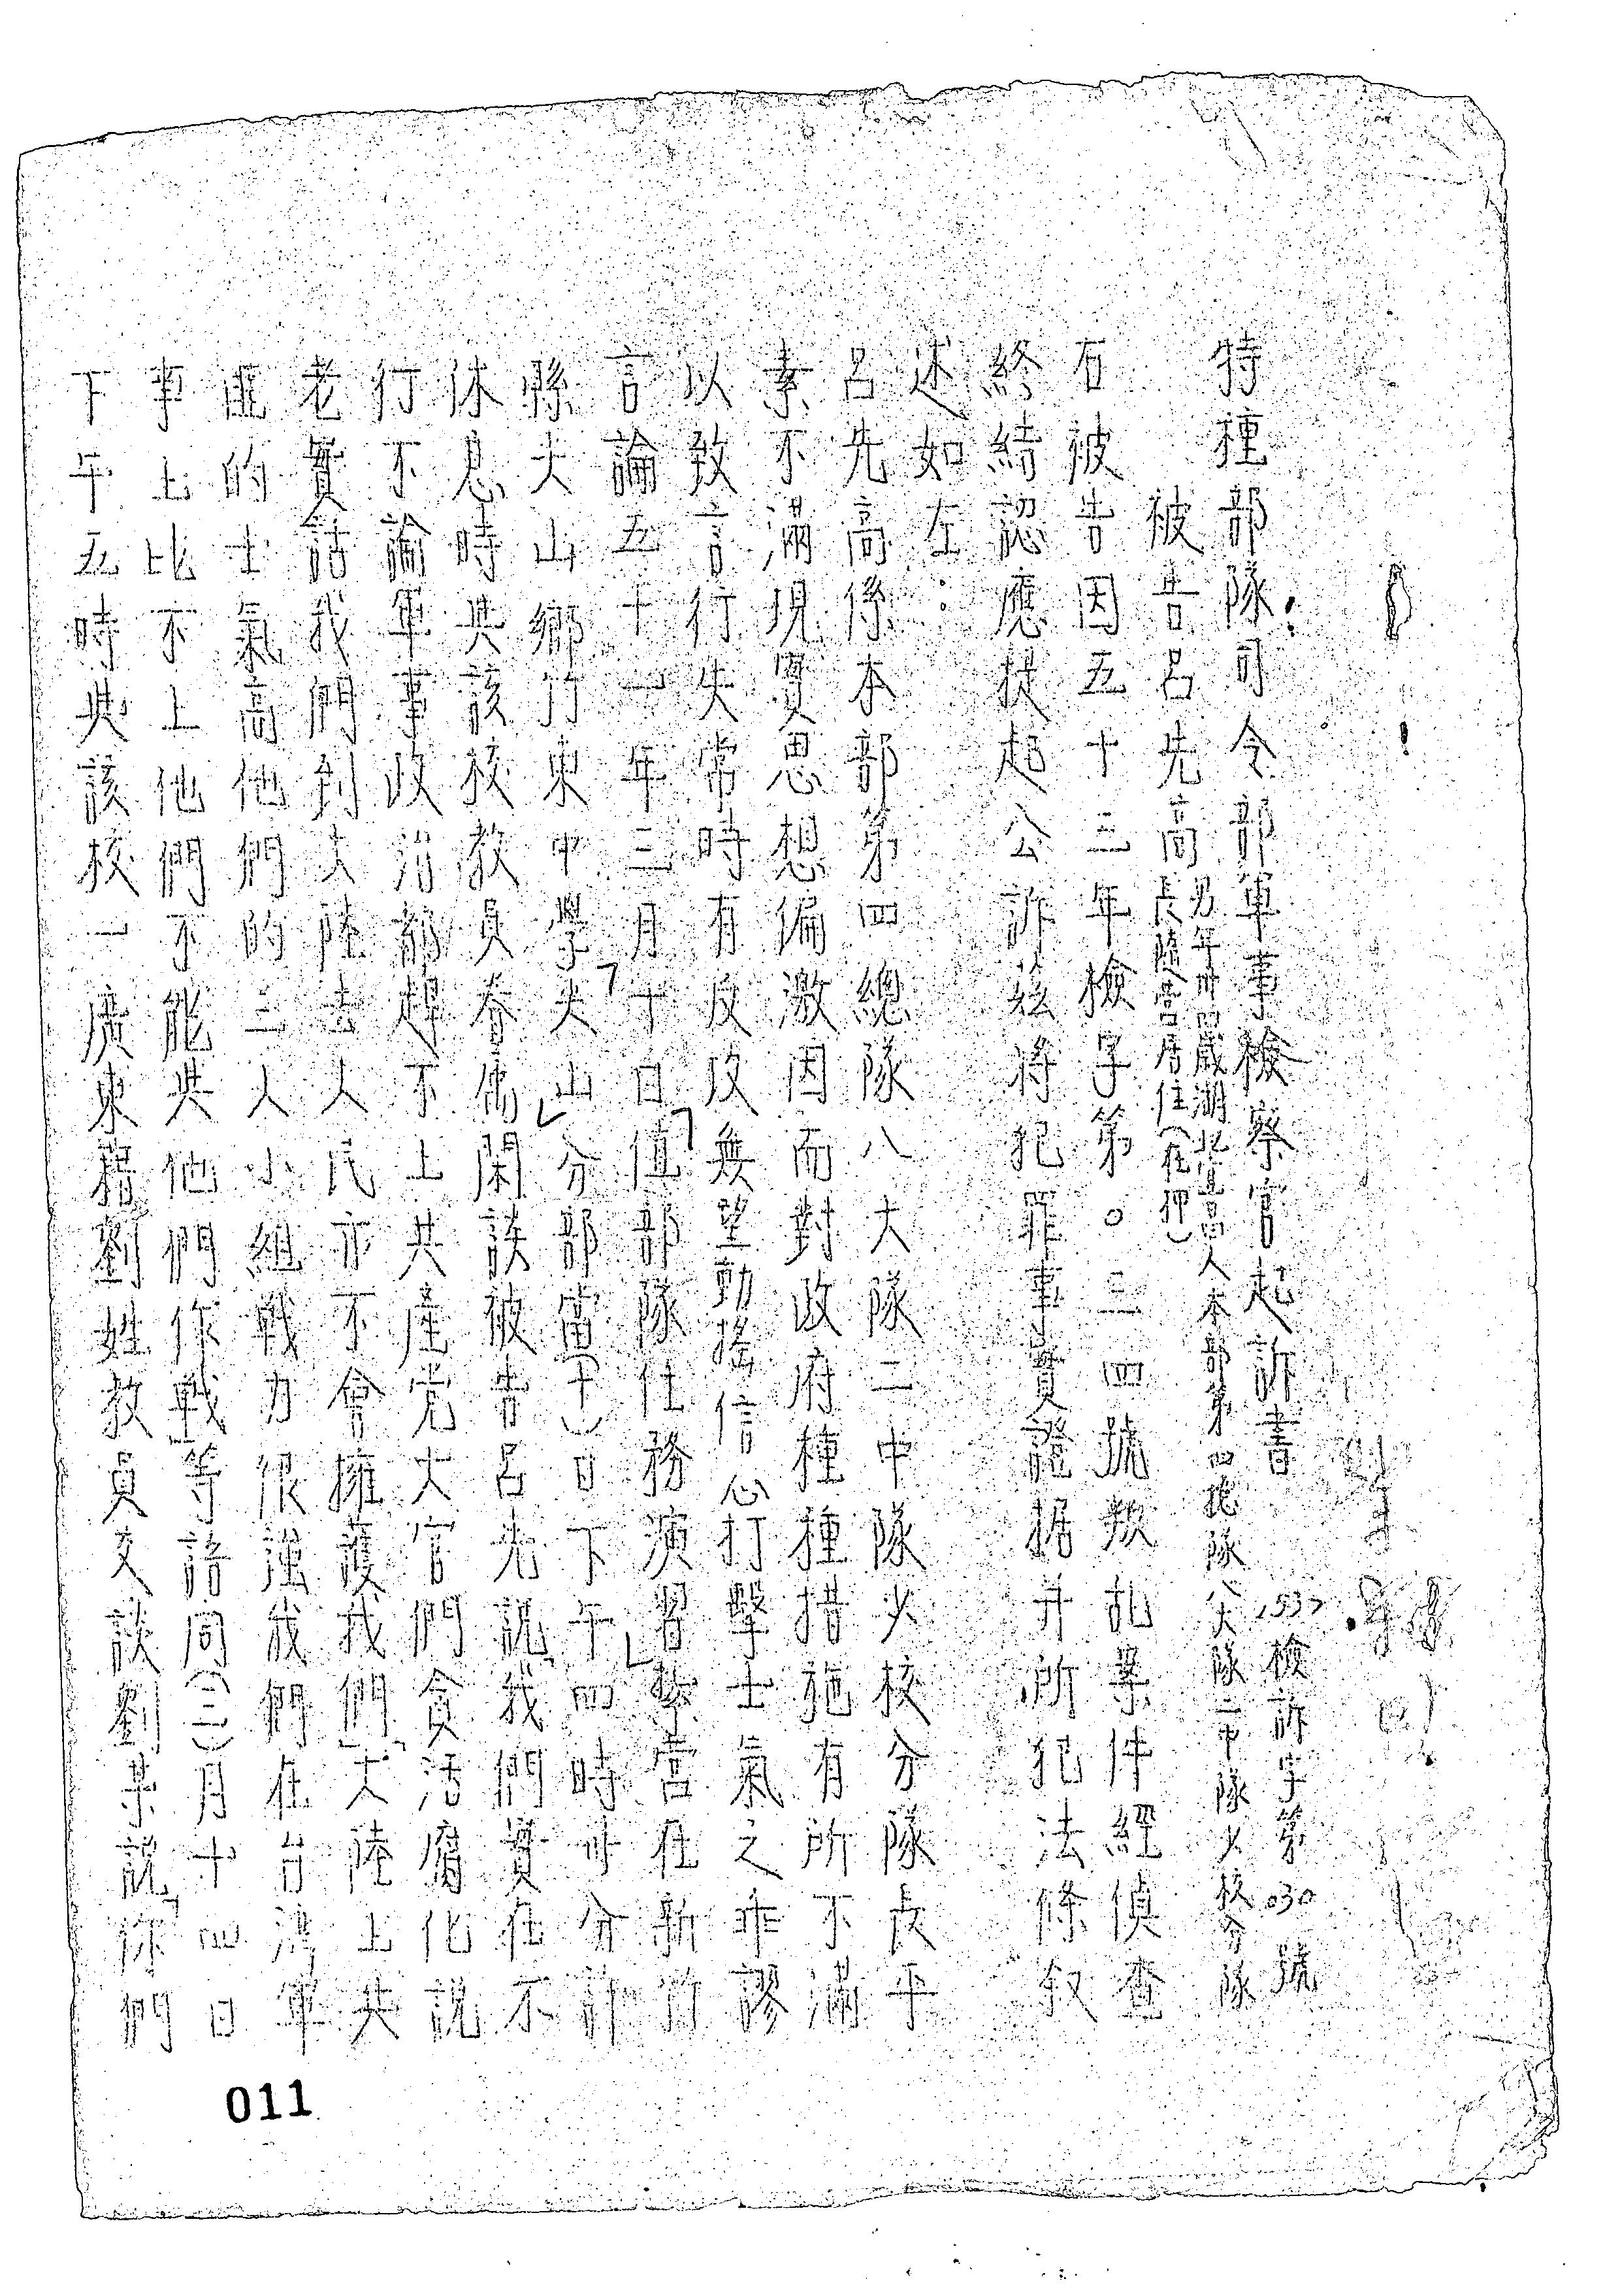 特種部隊司令部軍事檢察官起訴書 (53)檢訴字第030號
被告呂先高 男年卅四歲湖北宜昌人本部第四總隊八大隊二中隊少校分隊
長隨營居住(在押)
右被告因五十三年檢字第○三四號叛亂案件經偵查
終結認應提起公訴茲將犯罪事實證據并所犯法條敘
述如左:
呂先高係本部第四總隊八大隊二中隊少校分隊長平
素不滿現實思想偏激因而對政府種種措施有所不滿
以致言行失常時有反攻無望動搖信心打擊士氣之乖謬
言論五十一年三月十日值部隊任務演習紮營在新竹
縣尖山鄉竹東中學尖山分部當(十)日下午四時卅分許
休息時與該校教員春儒閑談被告呂先高說我們實在不
行不論軍事政治都趕不上共產党大官們貪活腐化說
老實話我們到大陸去人民亦不會擁護我們大陸上共
匪的士氣高他們的三人小組戰力很强我們在台灣軍
事上比不上他們不能與他們作戰等語同(三)月十四日
下午五時與該校一廣東籍劉姓教員交談劉某說你們
011